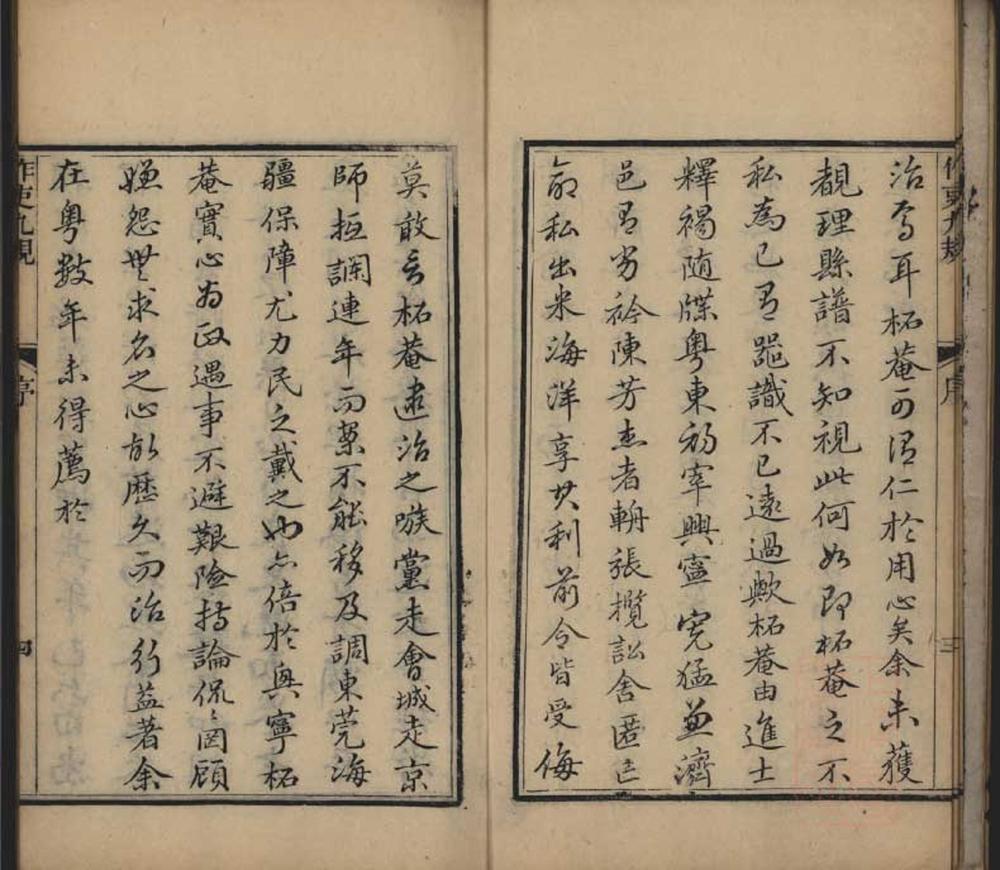 作吏九規
序
三
治焉耳柘菴可謂仁於用心矣余未獲
覩理縣譜不知視此何如即柘菴之不
私為己有器識不已遠過歟柘菴由進士
釋褐隨牒粤東初宰興寧寬猛並濟
邑有劣衿陳芳杰者輈張攬訟舍匿亡
命私出米海洋享其利前令皆受侮
莫敢言柘菴逮治之嗾黨走會城走京
師抵讕連年而案不能移及調東莞海
疆保障尤力民之戴之也亦倍於興寧柘
菴實心為政遇事不避艱險持論侃侃罔顧
嫌怨無求名之心故歷久而治行益著余
在粤數年未得薦於
作吏九規
序
四